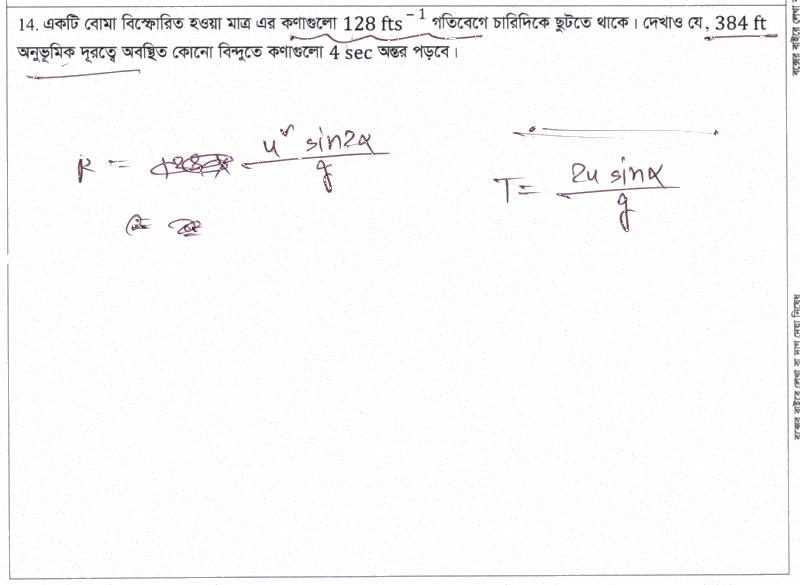 14. একটি বোমা বিস্ফোরিত হওয়া মাত্র এর কণাগুলো 128 fts⁻¹ গতিবেগে চারিদিকে ছুটতে থাকে। দেখাও যে, 384 ft
অনুভূমিক দূরত্বে অবস্থিত কোনো বিন্দুতে কণাগুলো 4 sec অন্তর পড়বে।
R = u² sin2α / g
T = 2u sinα / g